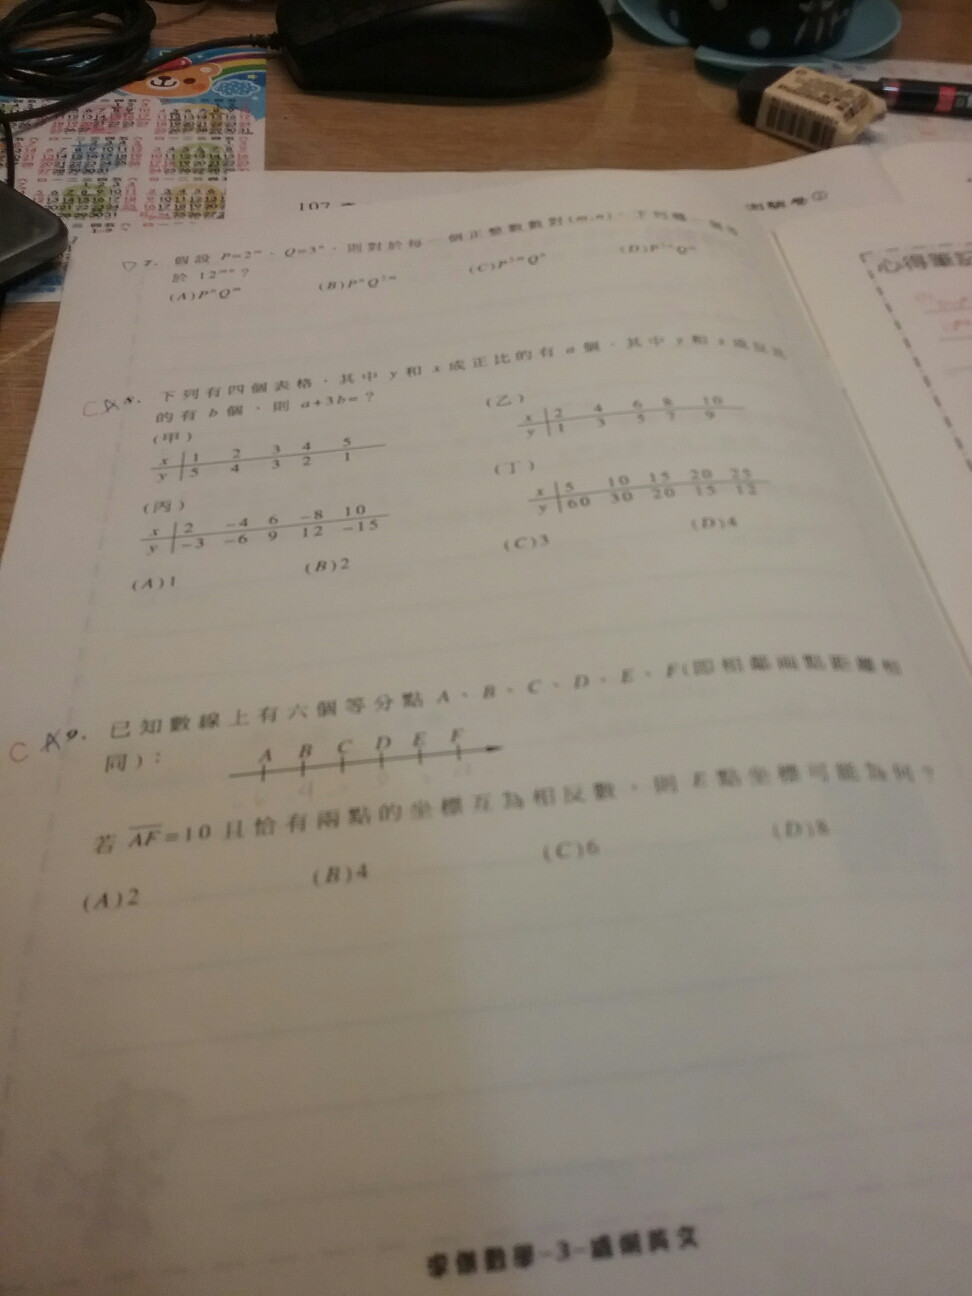 107
測驗卷②
▽ 7. 假設 P=2ᵐ、Q=3ⁿ，則對於每一個正整數數對(m,n)，下列哪一個等
於 12ᵐⁿ？
(A)PⁿQᵐ
(B)PⁿQ²ᵐ
(C)P²ⁿQᵐ
C A 8. 下列有四個表格，其中 y 和 x 成正比的有 a 個，其中 y 和 x 成反比
的有 b 個，則 a+3b=？
(甲)
x 1 2 3 4 5
y 5 4 3 2 1
(乙)
x 2 4 6 8 10
y 1 3 5 7 9
(丙)
x 2 -4 6 -8 10
y -3 -6 9 12 -15
(丁)
x 5 10 15 20 25
y 60 30 20 15 12
(A)1 (B)2 (C)3 (D)4
C A 9. 已知數線上有六個等分點 A、B、C、D、E、F(即相鄰兩點距離相
同)：
A B C D E F
若 AF=10 且恰有兩點的坐標互為相反數，則 E 點坐標可能為何？
(A)2 (B)4 (C)6 (D)8
心得筆記
數學-3-